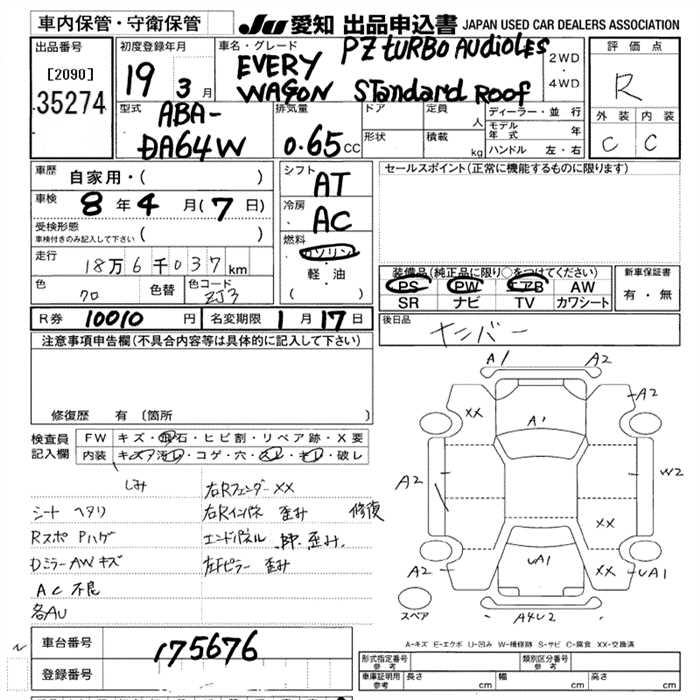 車内保管・守衛保管
JU 愛知 出品申込書 JAPAN USED CAR DEALERS ASSOCIATION
出品番号
[2090]
35274
初度登録年月
19 3月
車名・グレード
PZ TURBO AUdioLES
EVERY
WAGON Standard Roof
2WD
・
4WD
評価点
R
外装 内装
C C
型式
ABA-
DA64W
排気量
0.65CC
ドア
形状
定員
人
積載
kg
ディーラー・並行
モデル年式 年
ハンドル 左・右
車歴
自家用・( )
車検
8年4月(7日)
受検形態
車検付きのみ記入して下さい ( )
走行
18万6千037km
色
クロ
色替
色コード
ZJ3
シフト
AT
冷房
AC
燃料
ガソリン
・
軽・油
( )
セールスポイント(正常に機能するものに限ります)
装備品(純正品に限り○をつけてください)
PS PW エアB AW
SR ナビ TV カワシート
新車保証書
有・無
R券 10010円
名変期限 1月17日
後日品
ナンバー
注意事項申告欄(不具合内容等は具体的に記入して下さい)
修復歴 有 〔箇所
検査員
記入欄
FW キズ・飛石・ヒビ割・リペア跡・X要
内装 キズア・汚レ・コゲ・穴・スレ・キレ・破レ
しみ
シート ヘタリ
Rスポ Pハゲ
Dミラー AW キズ
AC 不良
各AU
右Rフェンダー XX
右Rインパネ 歪み 修復
エンドパネル 歪み.
左Fピラー 歪み
A1 A2
XX A1 A2
A2 W2
XX
A2 UA1 UA1
スペア
A4U2 XX
A-キズ E-エクボ U-凹み W-補修跡 S-サビ C-腐食 XX-交換済
車台番号
175676
登録番号
形式指定番号
参考
類別区分番号
参考
車庫証明用
参考
長さ cm 幅 cm 高さ cm